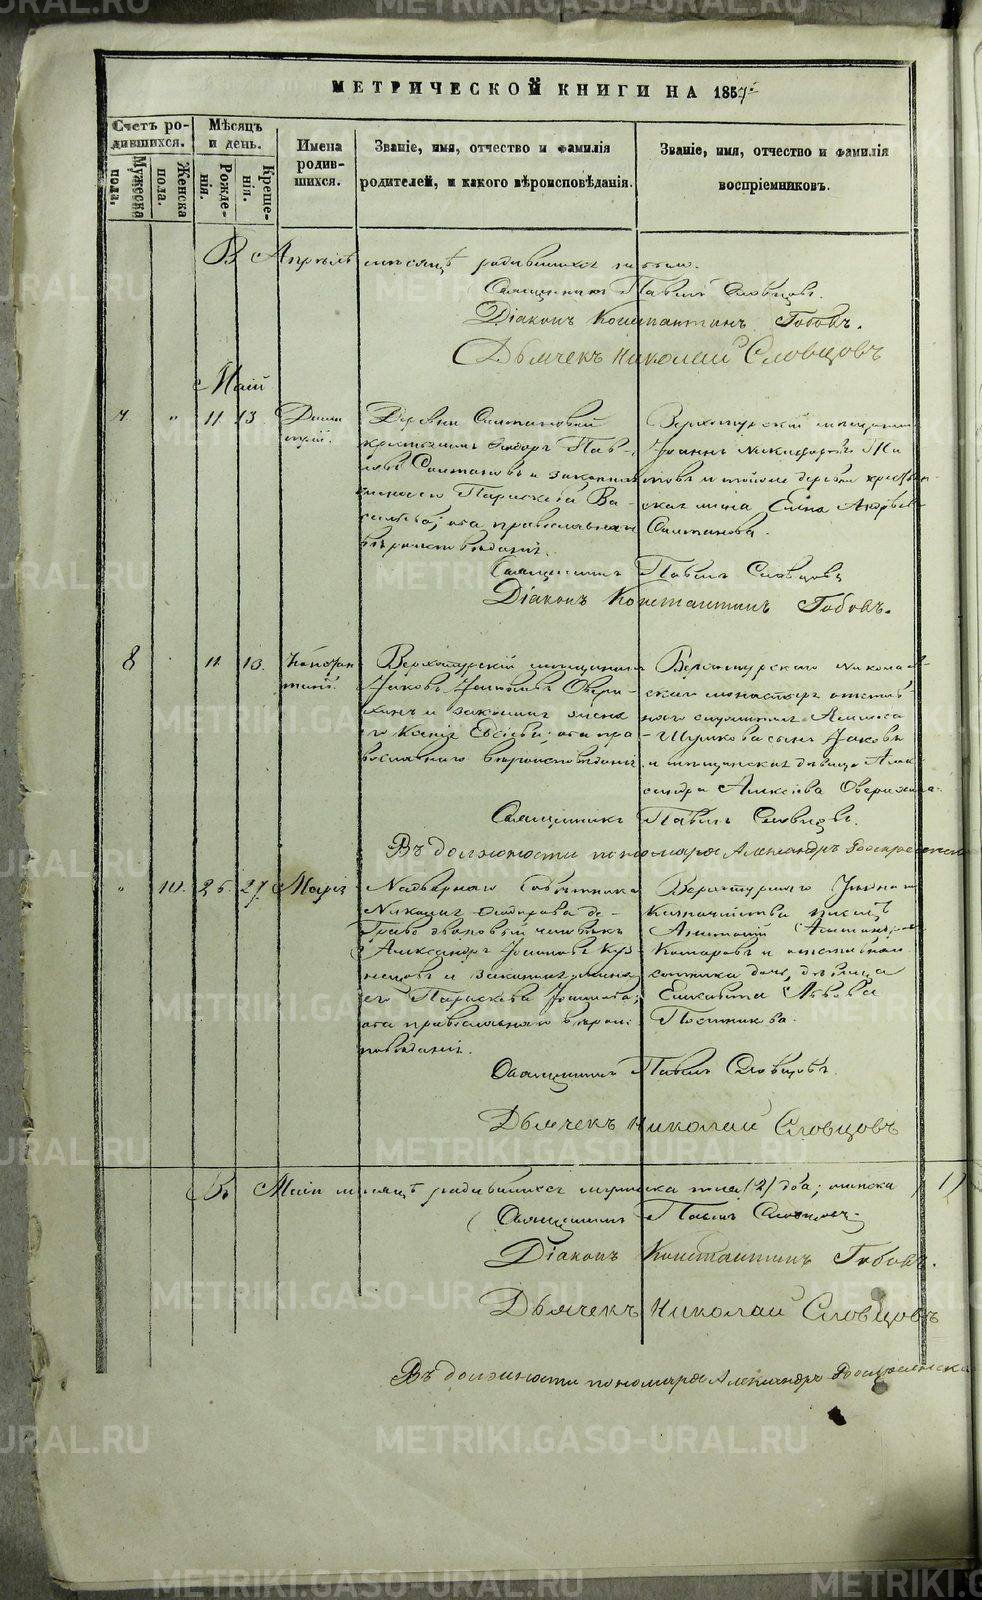 МЕТРИЧЕСКОЙ КНИГИ НА 1857
Счетъ родившихся.
Мѣсяцъ и день.
Имена родившихся.
Званіе, имя, отчество и фамилія родителей, и какого вѣроисповѣданія.
Званіе, имя, отчество и фамилія воспріемниковъ.
Мужеска пола.
Женска пола.
Рожденія.
Крещенія.
В Апрѣлѣ мѣсяцѣ родившихся не было.
Священникъ Павелъ Словцовъ.
Діаконъ Константинъ Гобовъ.
Дьячекъ Николай Словцовъ
Маій
7 " 11 13
Дими
трій.
Деревни Салтановой
крестьянинъ Ѳедоръ Пав-
ловъ Салтановъ и законная
жена его Параскева Ва-
сильева; оба православнаго
вѣроисповѣданія.
Верхотурскій мѣщанинъ
Іоаннъ Никифоровъ
и тойже деревни крестьян-
ская жена Елена Андреева
Салтанова.
Священникъ Павелъ Словцовъ
Діаконъ Константинъ Гобовъ.
8 11. 13.
Констан
тинъ.
Верхотурскій мѣщанинъ
Іаковъ
и законная жена
его Евсіева; оба пра-
вославнаго вѣроисповѣданія
Верхотурскаго Николаев-
скаго монастыря отстав-
наго служителя
Шумкова сынъ Іаковъ
и мѣщанская дѣвица Алек-
сандра Алексіева Оверихина.
Священникъ Павелъ Словцовъ.
Въ должности пономаря Александръ
" 10. 25. 27. Марія
Надворнаго Совѣтника
Николая Ѳеодорова де-
Граве дворовый человѣкъ
Александръ Іоанновъ Куз-
нецовъ и законная жена
его Параскева Іоаннова;
оба православнаго вѣроис-
повѣданія.
Верхотурскаго Уѣзднаго
Казначейства писецъ
Анатолій
Комаровъ и отставнаго
сотника дочь, дѣвица
Елисавета Львова
Постникова.
Священникъ Павелъ Словцовъ.
Дьячекъ Николай Словцовъ
Въ Маіи мѣсяцѣ родившихся мужеска пола /2/ два; женска /1/
Священникъ Павелъ Словцовъ
Діаконъ Константинъ Гобовъ.
Дьячекъ Николай Словцовъ
Въ должности пономаря Александръ
METRIKI.GASO-URAL.RU